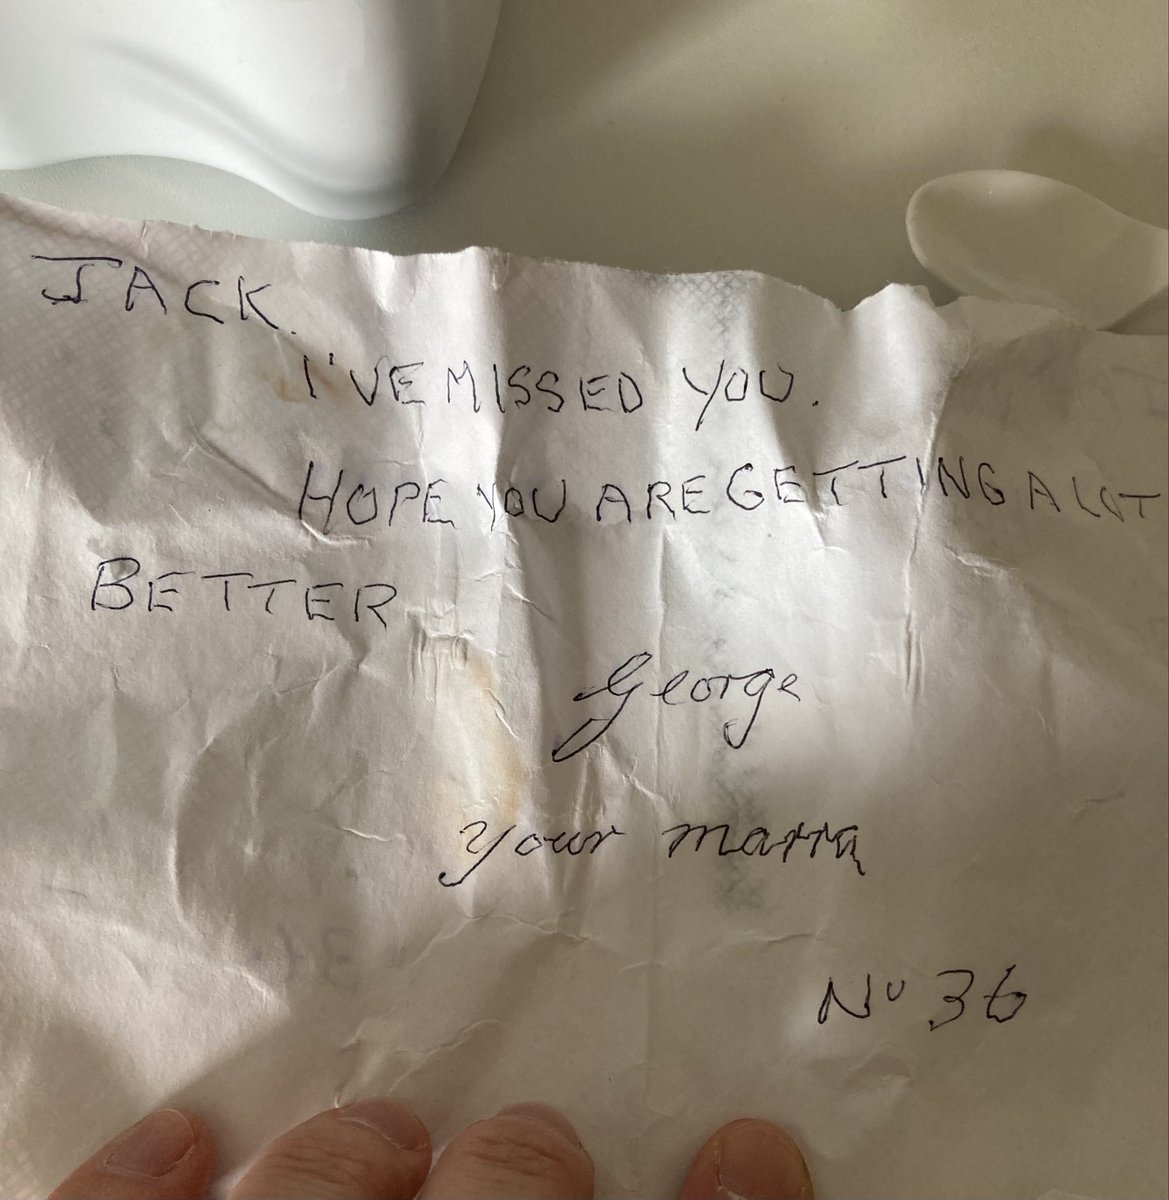 JACK.
I'VE MISSED YOU.
HOPE YOU ARE GETTING A LOT
BETTER
George
your marra
No 36